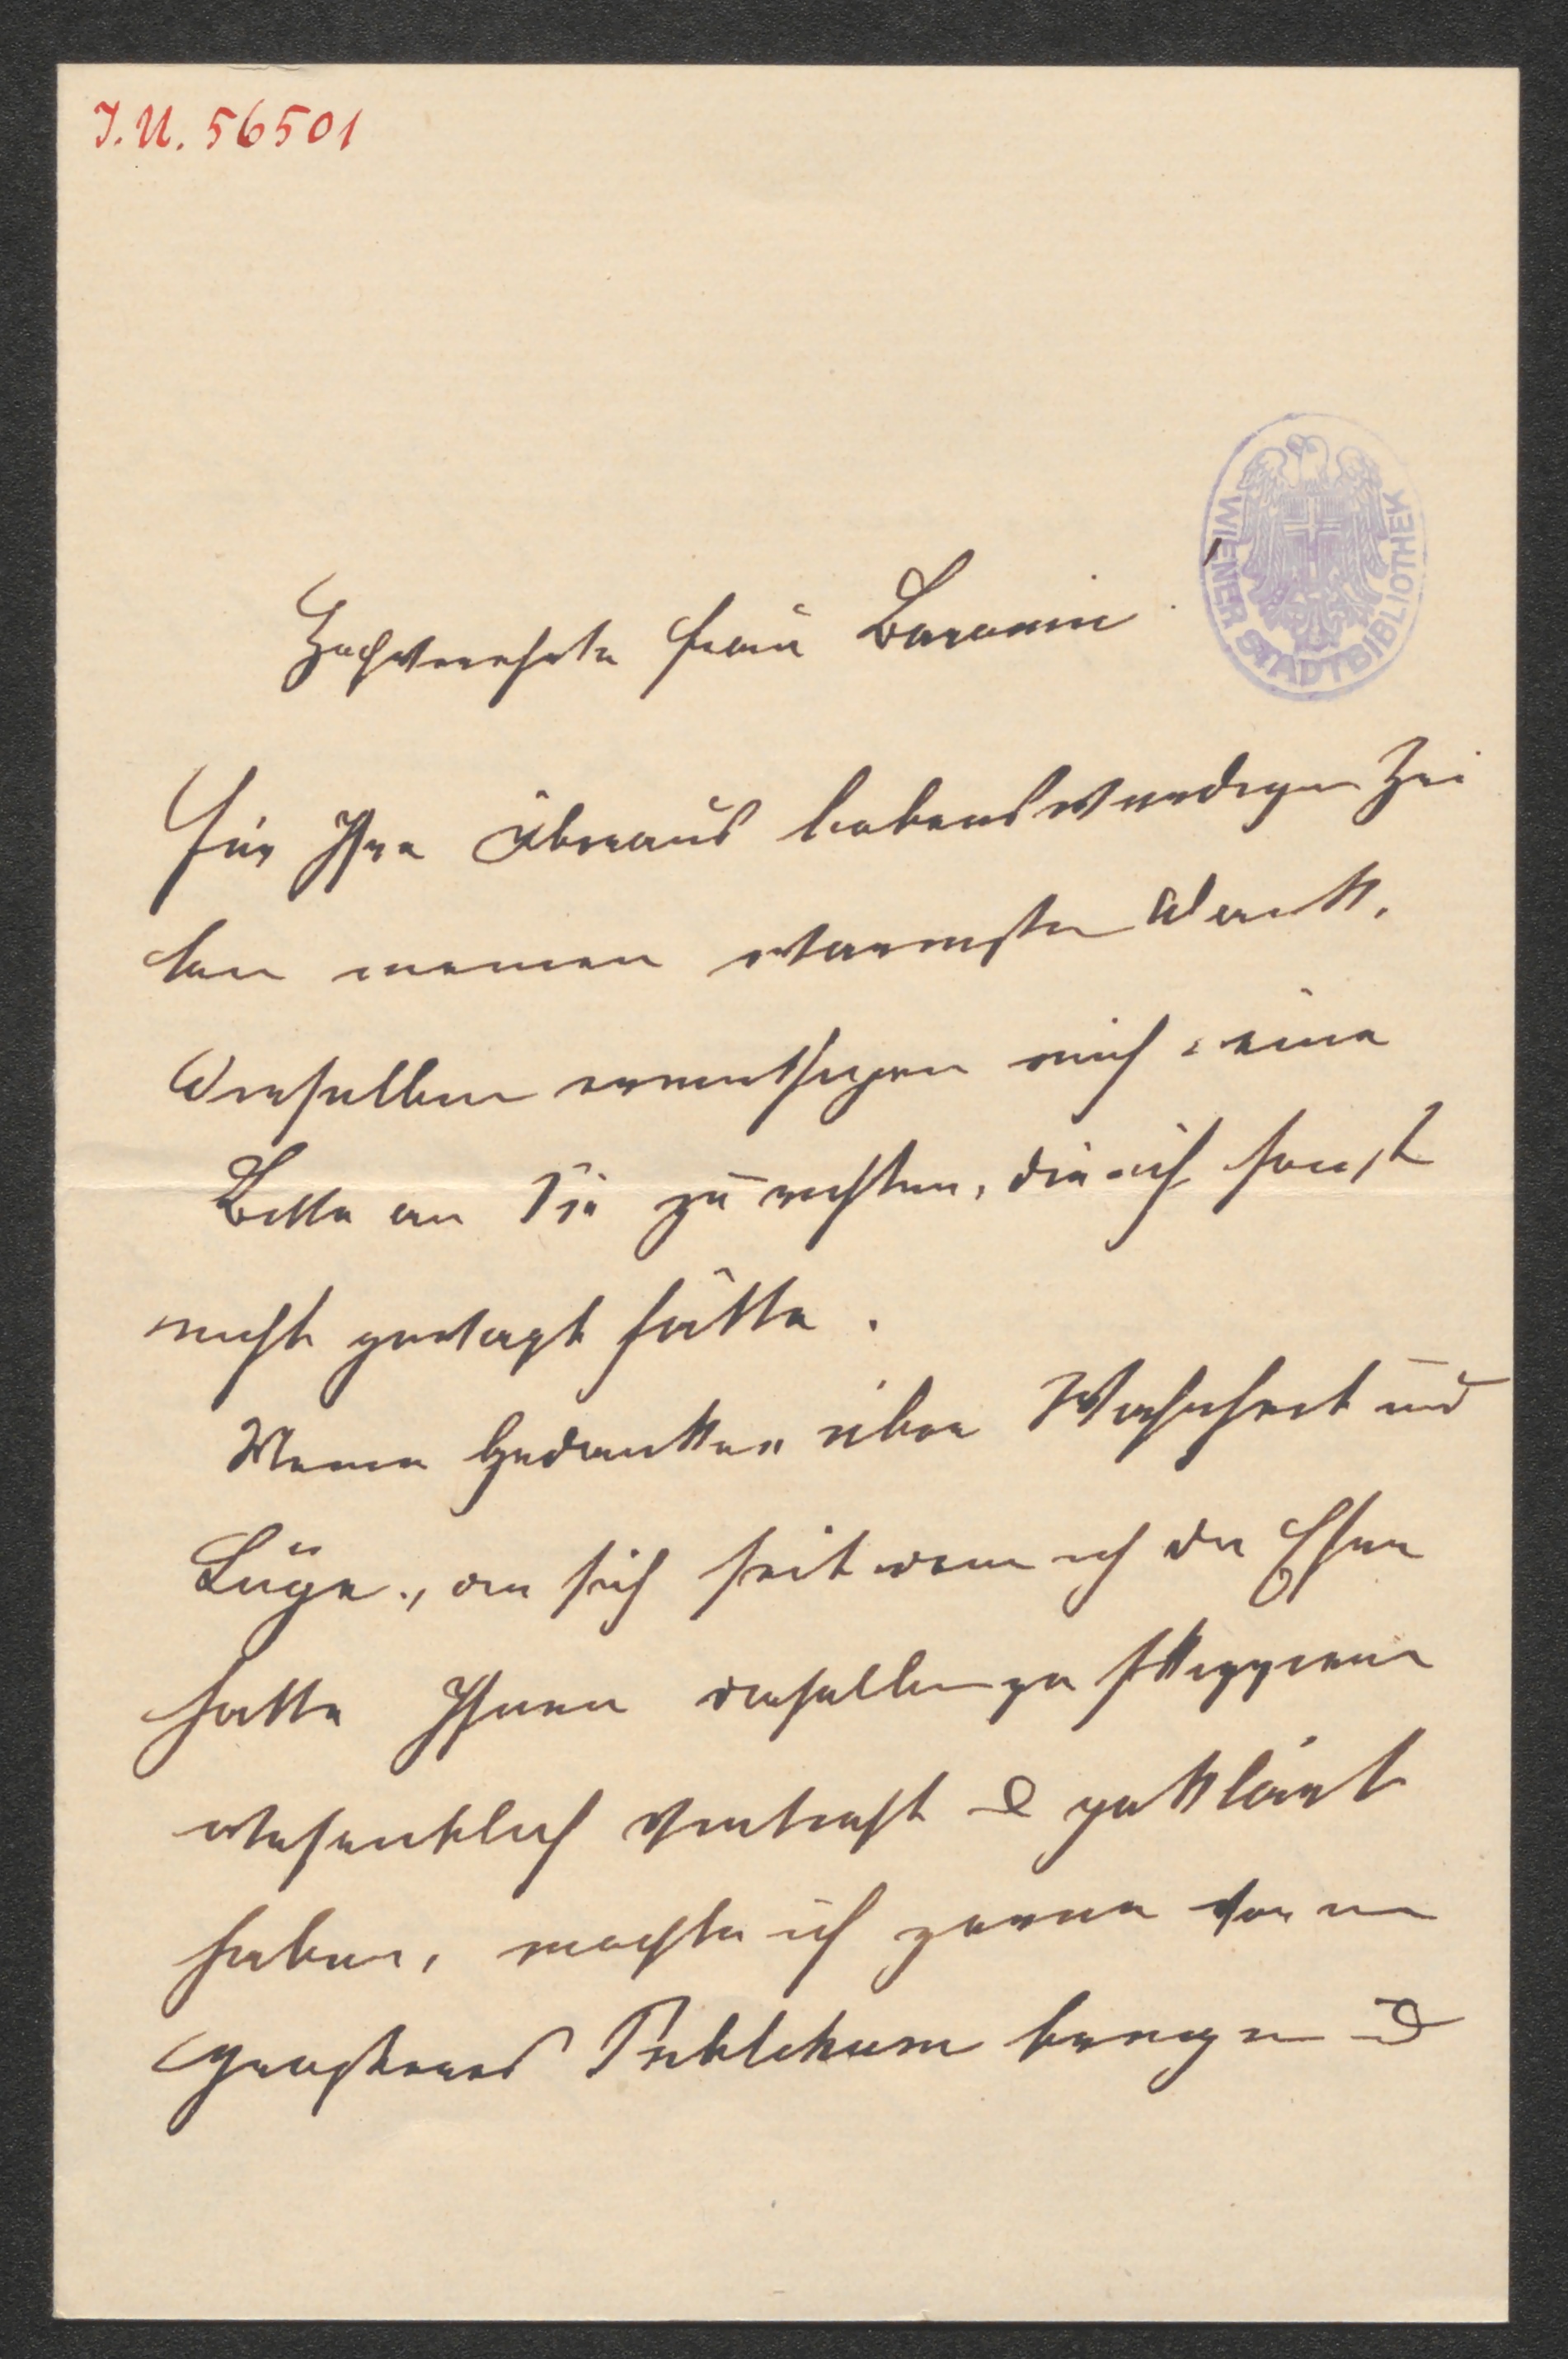 J.N. 56501
WIENER STADTBIBLIOTHEK
Hochverehrte Frau Baronin
Für Ihre überaus liebenswürdigen Zei
len meinen wärmsten Dank.
Dieselben ermuthigen mich eine
Bitte an Sie zu richten, die ich sonst
nicht gewagt hätte.
Meine Gedanken über Wahrheit und
Lüge, die sich seitdem ich die Ehre
hatte Ihnen dieselben zu skizziren
wesentlich vertieft & geklärt
haben, möchte ich gerne vor ein
grösseres Publikum bringen &